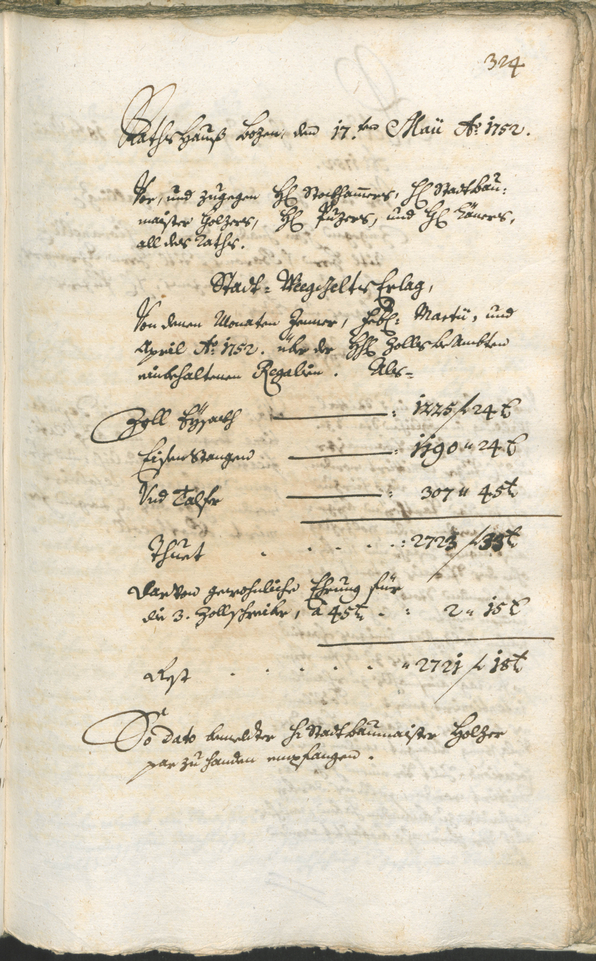 324
Rathshauß Bozen, den 17.ten Maii Ao: 1752.
Vor, und zugegen H: Stockhamers, H: Stadtbau:
maister Holzers, H: Puzers, und H:
all des Raths.
Stadt-Weegzolts Erlag,
Von denen Monaten Jenner, Febr: Martii, und
April Ao: 1752. über der Zolls beambten
einbehaltenen Regalien. Als-
Zoll Eysach : 1225 f 24 t
Eisenstangen : 1190 " 24 t
Und Talfer : 307 " 45 t
Thuet : 2723 f 33 t
Darvon gewohnliche Ehrung für
die 3. Zollschreiber, à 45 t : 2 " 15 t
Rest " 2721 f 18 t
So dato bemeldter H: Stadtbaumaister Holzer
par zu handen empfangen.